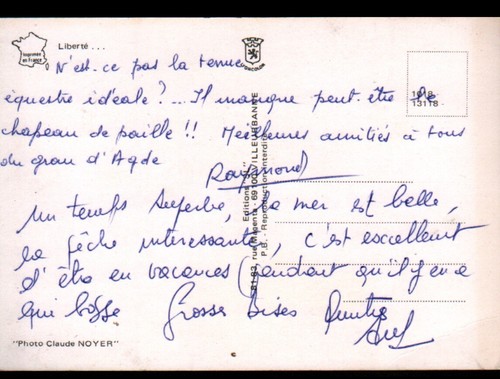 Imprimée en France
Liberté...
N'est-ce pas la tenue
équestre idéale?... Il manque peut-être le
chapeau de paille!! Meilleures amitiés à tous
du grau d'Agde
Raymond
Un temps superbe, la mer est belle,
la pêche intéressante, c'est excellent
d'être en vacances pendant qu'il y en a
qui bosse Grosses Bises
1018
13118
Editions
rue Magenta - 69100 VILLEURBANNE
P.B. - Reproduction interdite
"Photo Claude NOYER"